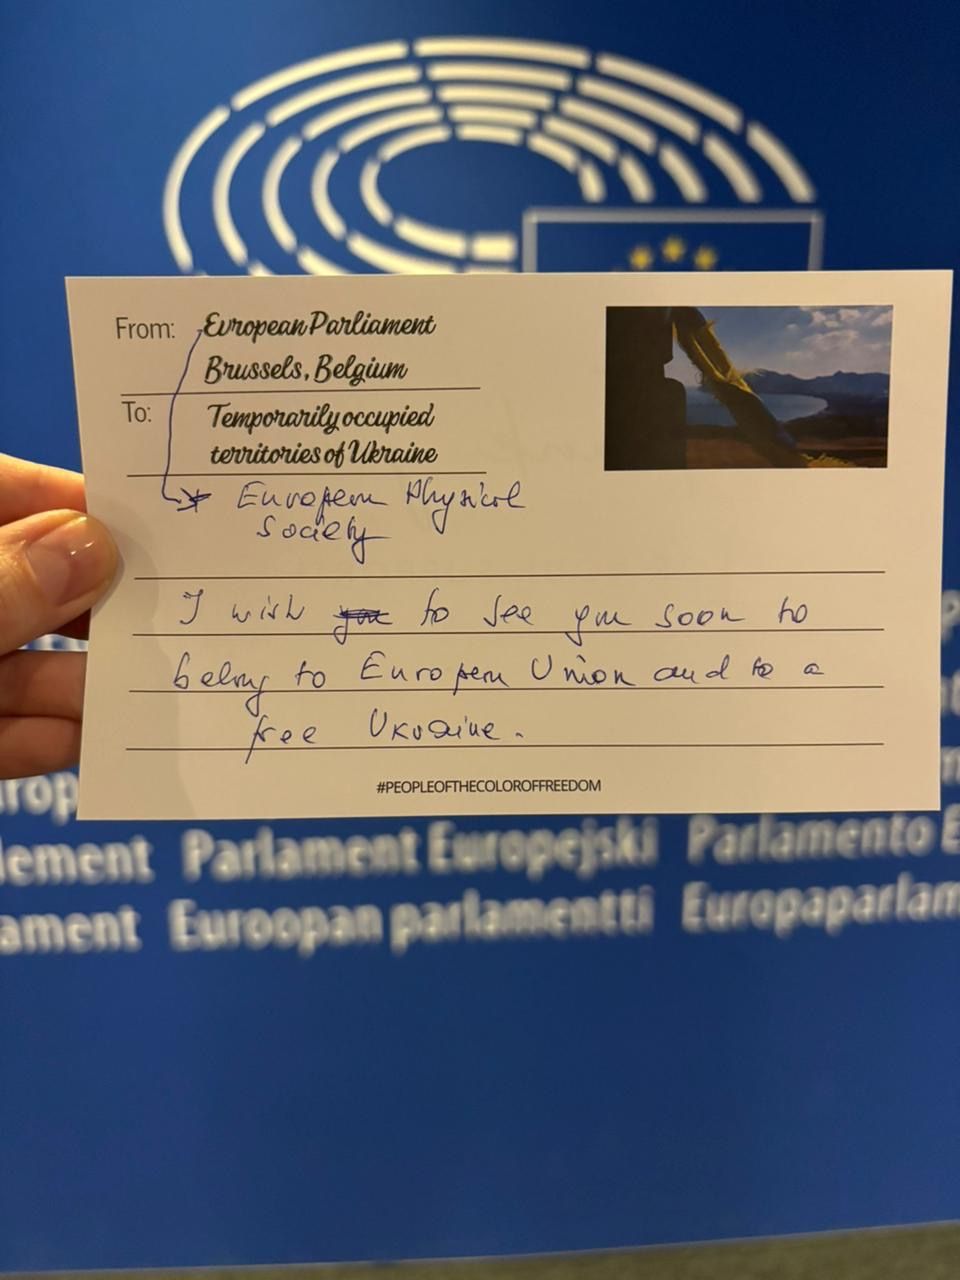 From: European Parliament
Brussels, Belgium
To: Temporarily occupied
territories of Ukraine
European Physical
Society
I wish to see you soon to
belong to European Union and to a
free Ukraine.
#PEOPLEOFTHECOLOROFFREEDOM
Parlament Europejski Parlamento E
Euroopan parlamentti Europaparlam